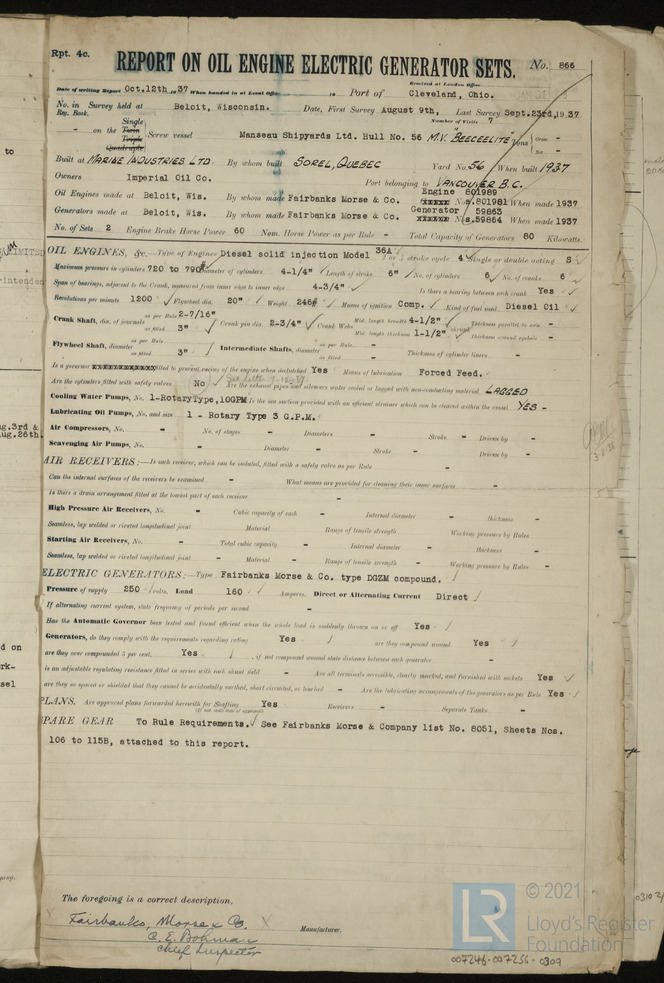 Rpt. 4c.
REPORT ON OIL ENGINE ELECTRIC GENERATOR SETS.
No. 866
Received at London Office
Date of writing Report Oct.12th, 1937 When handed in at Local Office 19 Port of Cleveland, Ohio.
No. in Survey held at Beloit, Wisconsin. Date, First Survey August 9th, Last Survey Sept.23rd, 1937
Reg. Book. Number of Visits 7
- on the Single Twin Triple Quadruple Screw vessel Manseau Shipyards Ltd. Hull No. 56 M.V. "BEECEELITE" Tons Gross - Net -
Built at MARINE INDUSTRIES LTD. By whom built SOREL, QUEBEC Yard No. 56 When built 1937
Owners Imperial Oil Co. Port belonging to VANCOUVER B.C.
Oil Engines made at Beloit, Wis. By whom made Fairbanks Morse & Co. Engine Nos. 801989 801981 When made 1937
Generators made at Beloit, Wis. By whom made Fairbanks Morse & Co. Generator Nos. 59863 59864 When made 1937
No. of Sets 2 Engine Brake Horse Power 60 Nom. Horse Power as per Rule - Total Capacity of Generators 80 Kilowatts.
OIL ENGINES, &c.—Type of Engines Diesel solid injection Model 36A 2 or 4 stroke cycle 4 Single or double acting S
Maximum pressure in cylinders 720 to 790# Diameter of cylinders 4-1/4" Length of stroke 6" No. of cylinders 6 No. of cranks 6
Span of bearings, adjacent to the Crank, measured from inner edge to inner edge 4-3/4" Is there a bearing between each crank Yes
Revolutions per minute 1200 Flywheel dia. 20" Weight 246# Means of ignition Comp. Kind of fuel used Diesel Oil
Crank Shaft, dia. of journals as per Rule 2-7/16" as fitted 3" Crank pin dia. 2-3/4" Crank Webs Mid. length breadth 4-1/2" Mid. length thickness 1-1/2" shrunk Thickness parallel to axis - Thickness around eyehole -
Flywheel Shaft, diameter as per Rule - as fitted 3" Intermediate Shafts, diameter as per Rule - as fitted - Thickness of cylinder liners -
Is a governor fitted to prevent racing of the engine when declutched Yes Means of lubrication Forced Feed.
Are the cylinders fitted with safety valves No Are the exhaust pipes and silencers water cooled or lagged with non-conducting material LAGGED
Cooling Water Pumps, No. 1-Rotary Type, 10GPM Is the sea suction provided with an efficient strainer which can be cleared within the vessel YES -
Lubricating Oil Pumps, No. and size 1 - Rotary Type 3 G.P.M.
Air Compressors, No. - No. of stages - Diameters - Stroke - Driven by -
Scavenging Air Pumps, No. - Diameter - Stroke - Driven by -
AIR RECEIVERS:—Is each receiver, which can be isolated, fitted with a safety valve as per Rule -
Can the internal surfaces of the receivers be examined - What means are provided for cleaning their inner surfaces -
Is there a drain arrangement fitted at the lowest part of each receiver -
High Pressure Air Receivers, No. - Cubic capacity of each - Internal diameter - thickness -
Seamless, lap welded or riveted longitudinal joint - Material - Range of tensile strength - Working pressure by Rules -
Starting Air Receivers, No. - Total cubic capacity - Internal diameter - thickness -
Seamless, lap welded or riveted longitudinal joint - Material - Range of tensile strength - Working pressure by Rules -
ELECTRIC GENERATORS:—Type Fairbanks Morse & Co. type DGZM compound.
Pressure of supply 250 volts. Load 160 Amperes. Direct or Alternating Current Direct
If alternating current, state frequency of periods per second -
Has the Automatic Governor been tested and found efficient when the whole load is suddenly thrown on or off Yes
Generators, do they comply with the requirements regarding rating Yes are they compound wound Yes
are they over compounded 5 per cent. Yes , if not compound wound state distance between each generator -
is an adjustable regulating resistance fitted in series with each shunt field - Are all terminals accessible, clearly marked, and furnished with sockets Yes
are they so spaced or shielded that they cannot be accidentally earthed, short circuited, or touched - Are the lubricating arrangements of the generators as per Rule Yes
PLANS. Are approved plans forwarded herewith for Shafting Yes Receivers - Separate Tanks -
(If not, state date of approval)
SPARE GEAR To Rule Requirements. See Fairbanks Morse & Company list No. 8051, Sheets Nos.
106 to 115B, attached to this report.
The foregoing is a correct description,
Fairbanks, Morse & Co.
C. E. Bohman
Chief Inspector
Manufacturer.
LR © 2021
Lloyd's Register
Foundation
007246-007256-0309